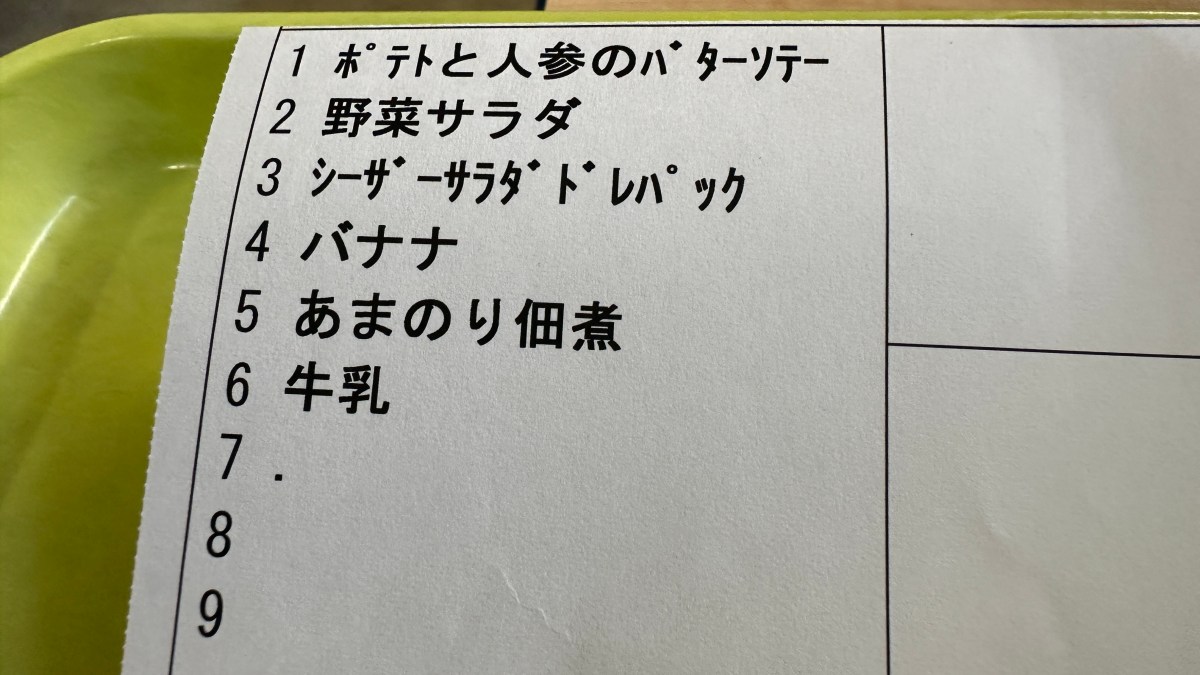 1 ﾎﾟﾃﾄと人参のﾊﾞﾀｰｿﾃｰ
2 野菜サラダ
3 ｼｰｻﾞｰｻﾗﾀﾞﾄﾞﾚﾊﾟｯｸ
4 バナナ
5 あまのり佃煮
6 牛乳
7 .
8
9